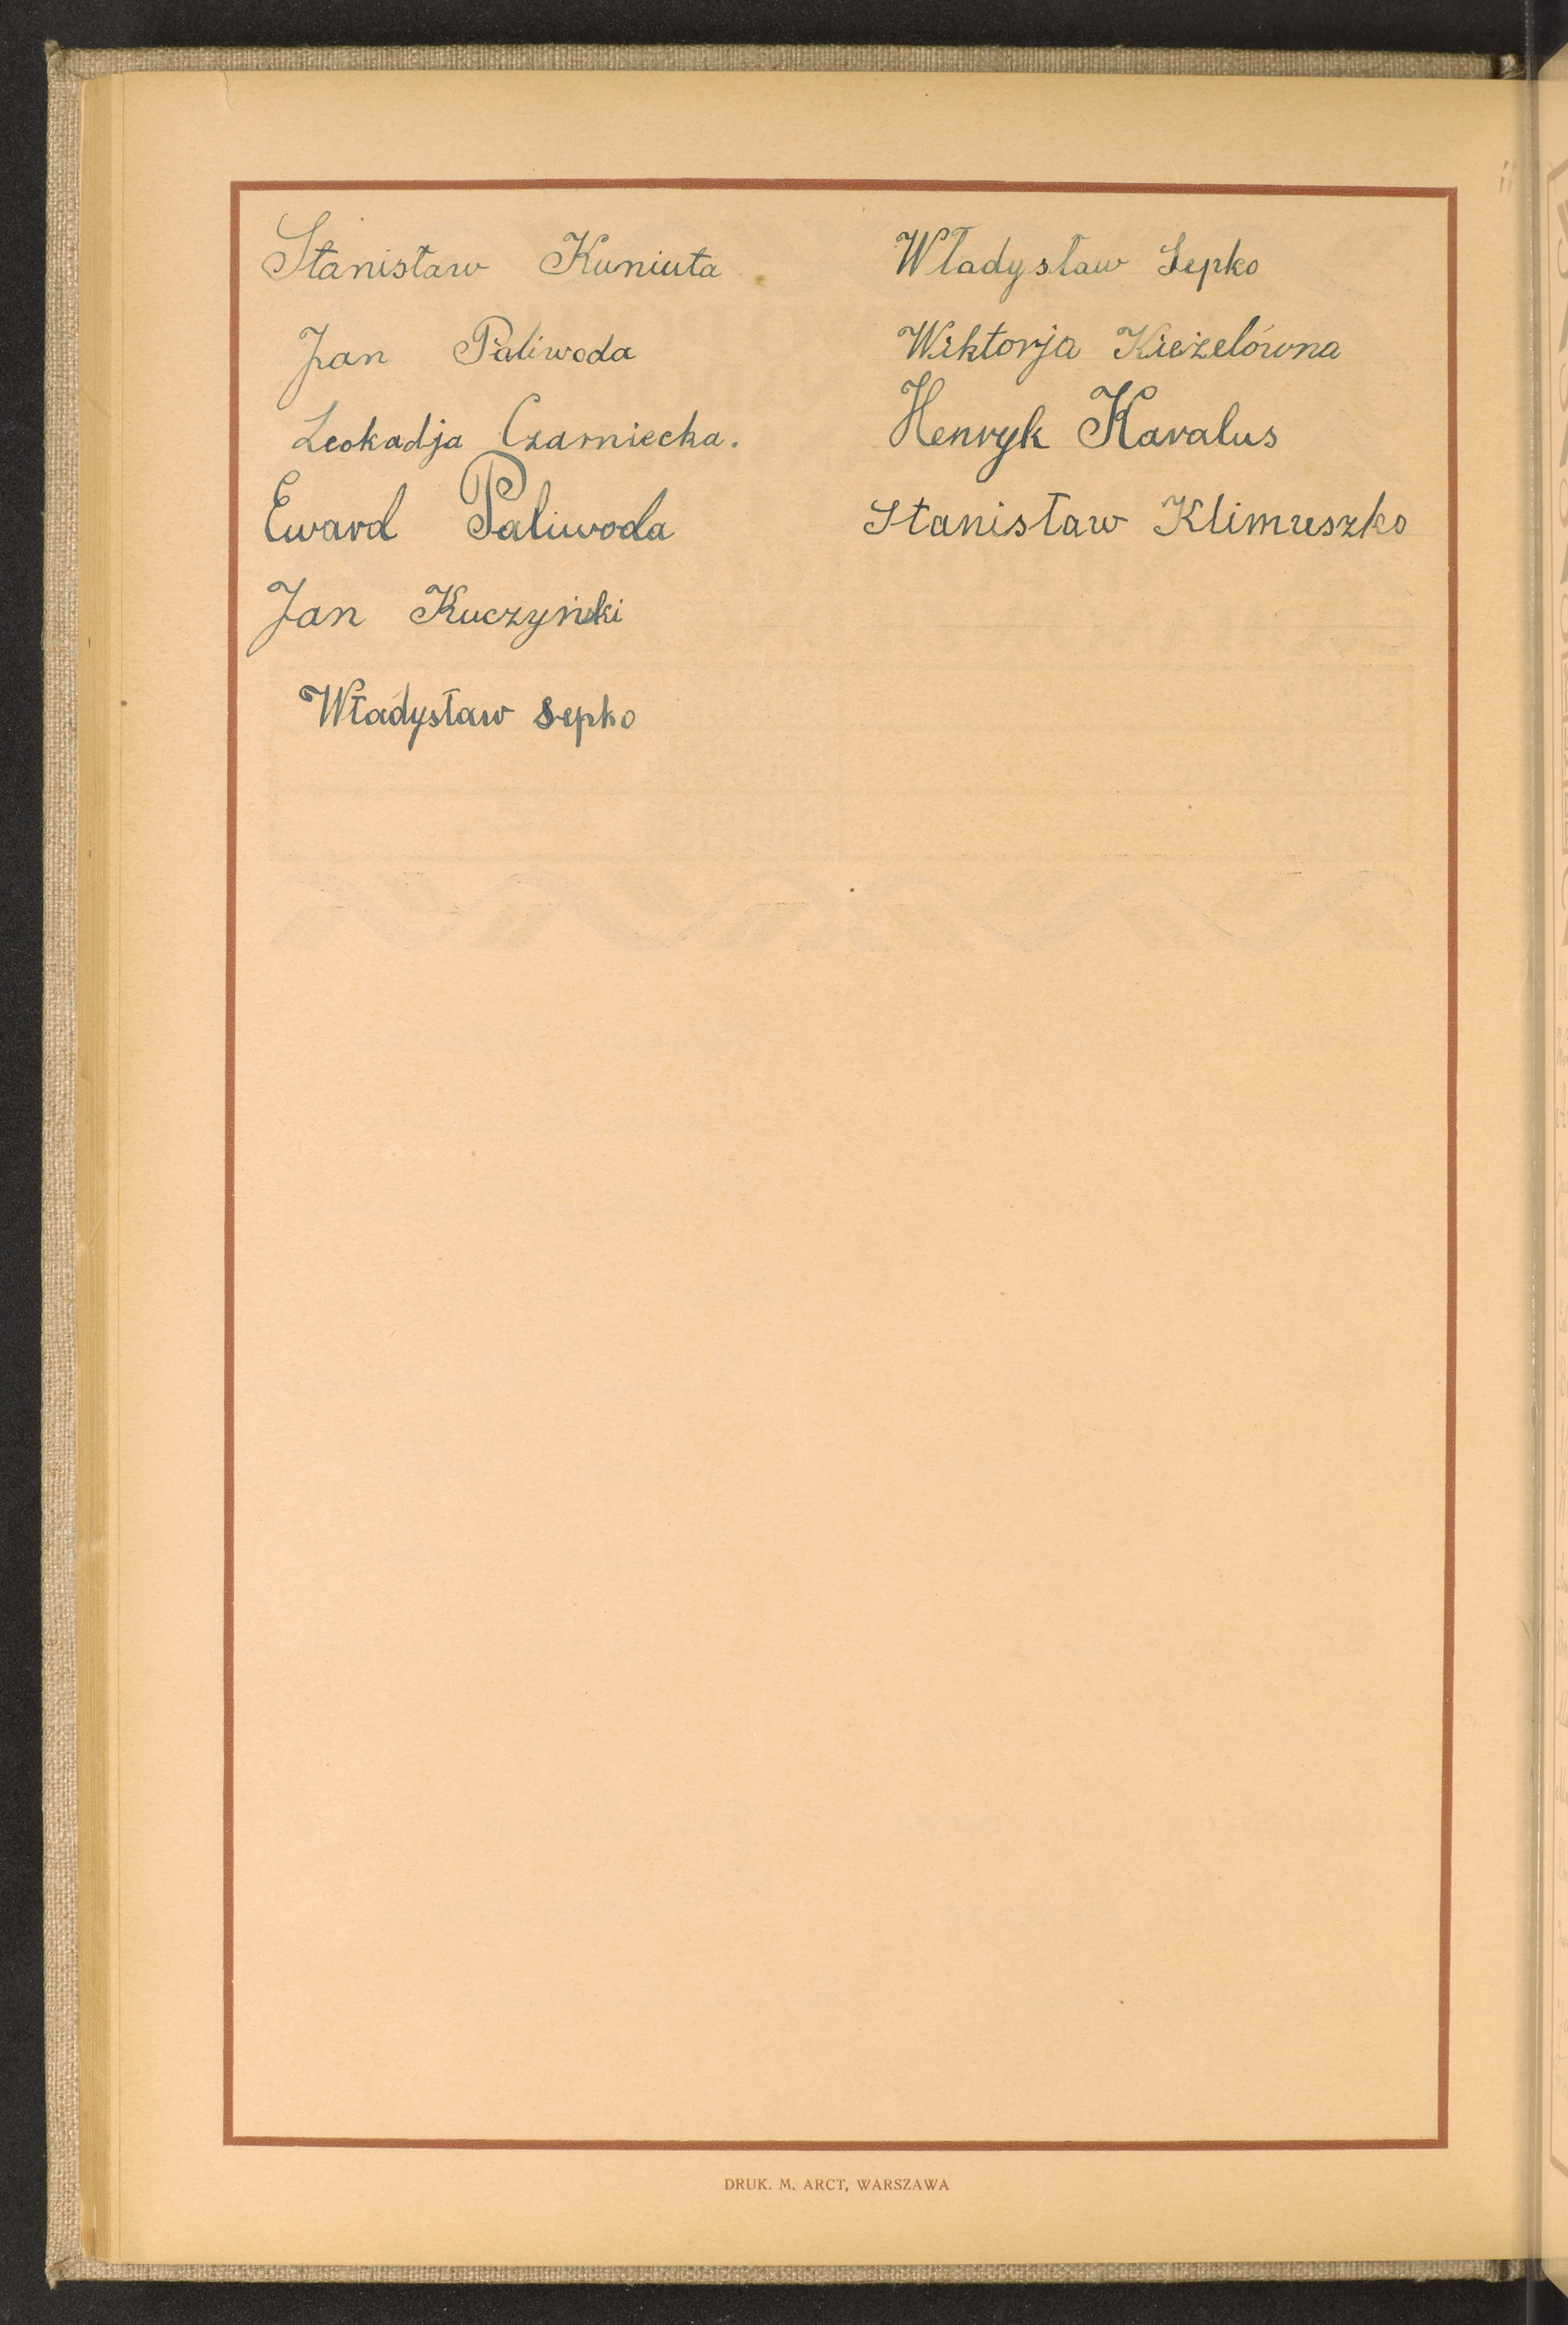 Stanisław Kuniuta
Jan Paliwoda
Leokadja Czarniecka.
Eward Paliwoda
Jan Kuczyński
Władysław Sepko
Władysław Sepko
Wiktorja Kieżelówna
Henryk Karalus
Stanisław Klimuszko
DRUK. M. ARCT, WARSZAWA